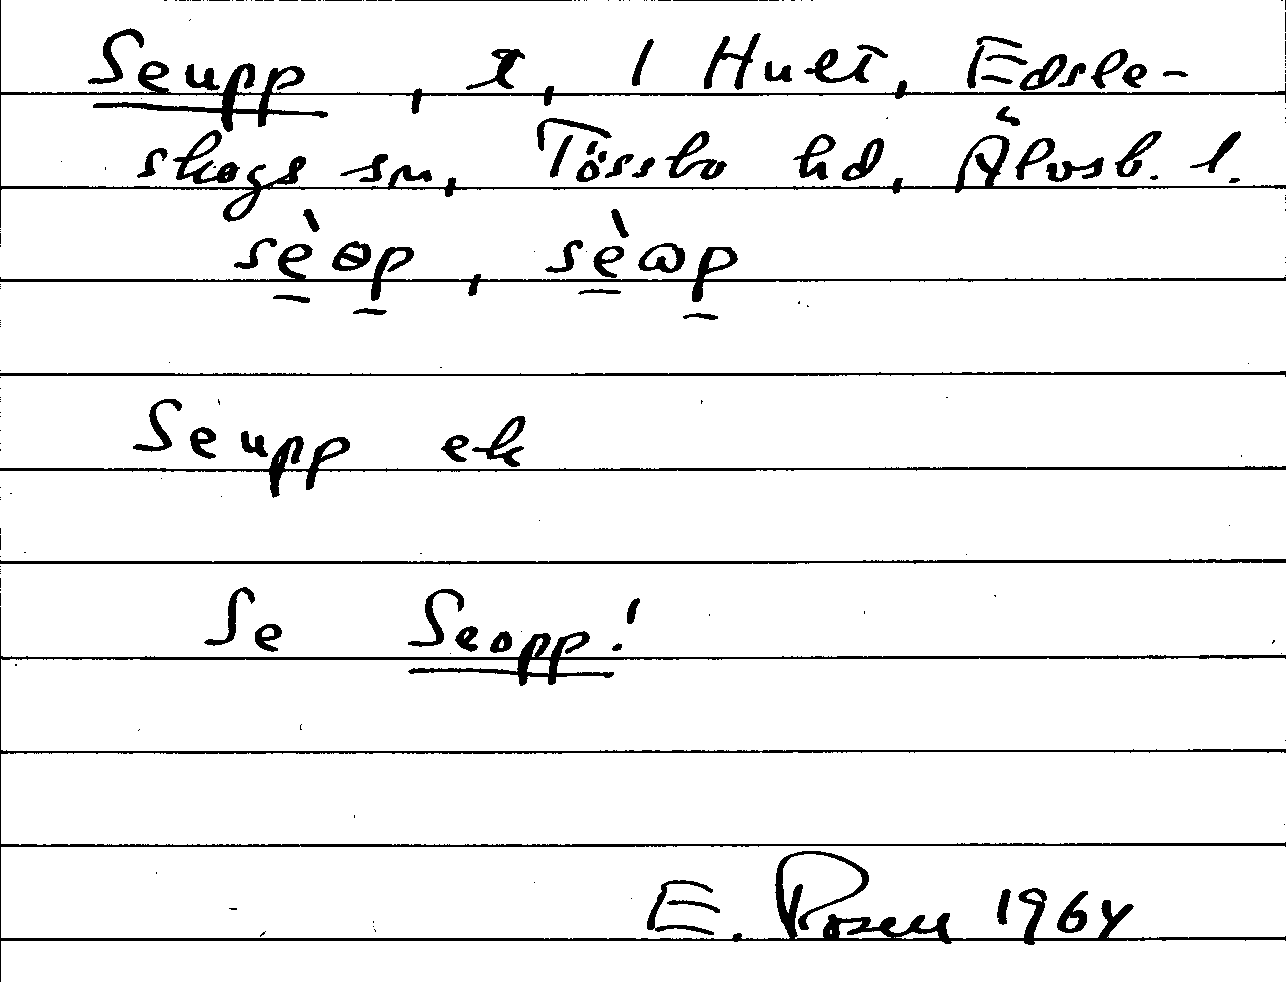 Seupp, t, 1 Hult, Edsle-
skogs sn, Tössbo hd, Älvsb. l.
sè̱ɵp̱, sè̱ωp̱
Seupp ek
Se Seopp!
E. Rosen 1964